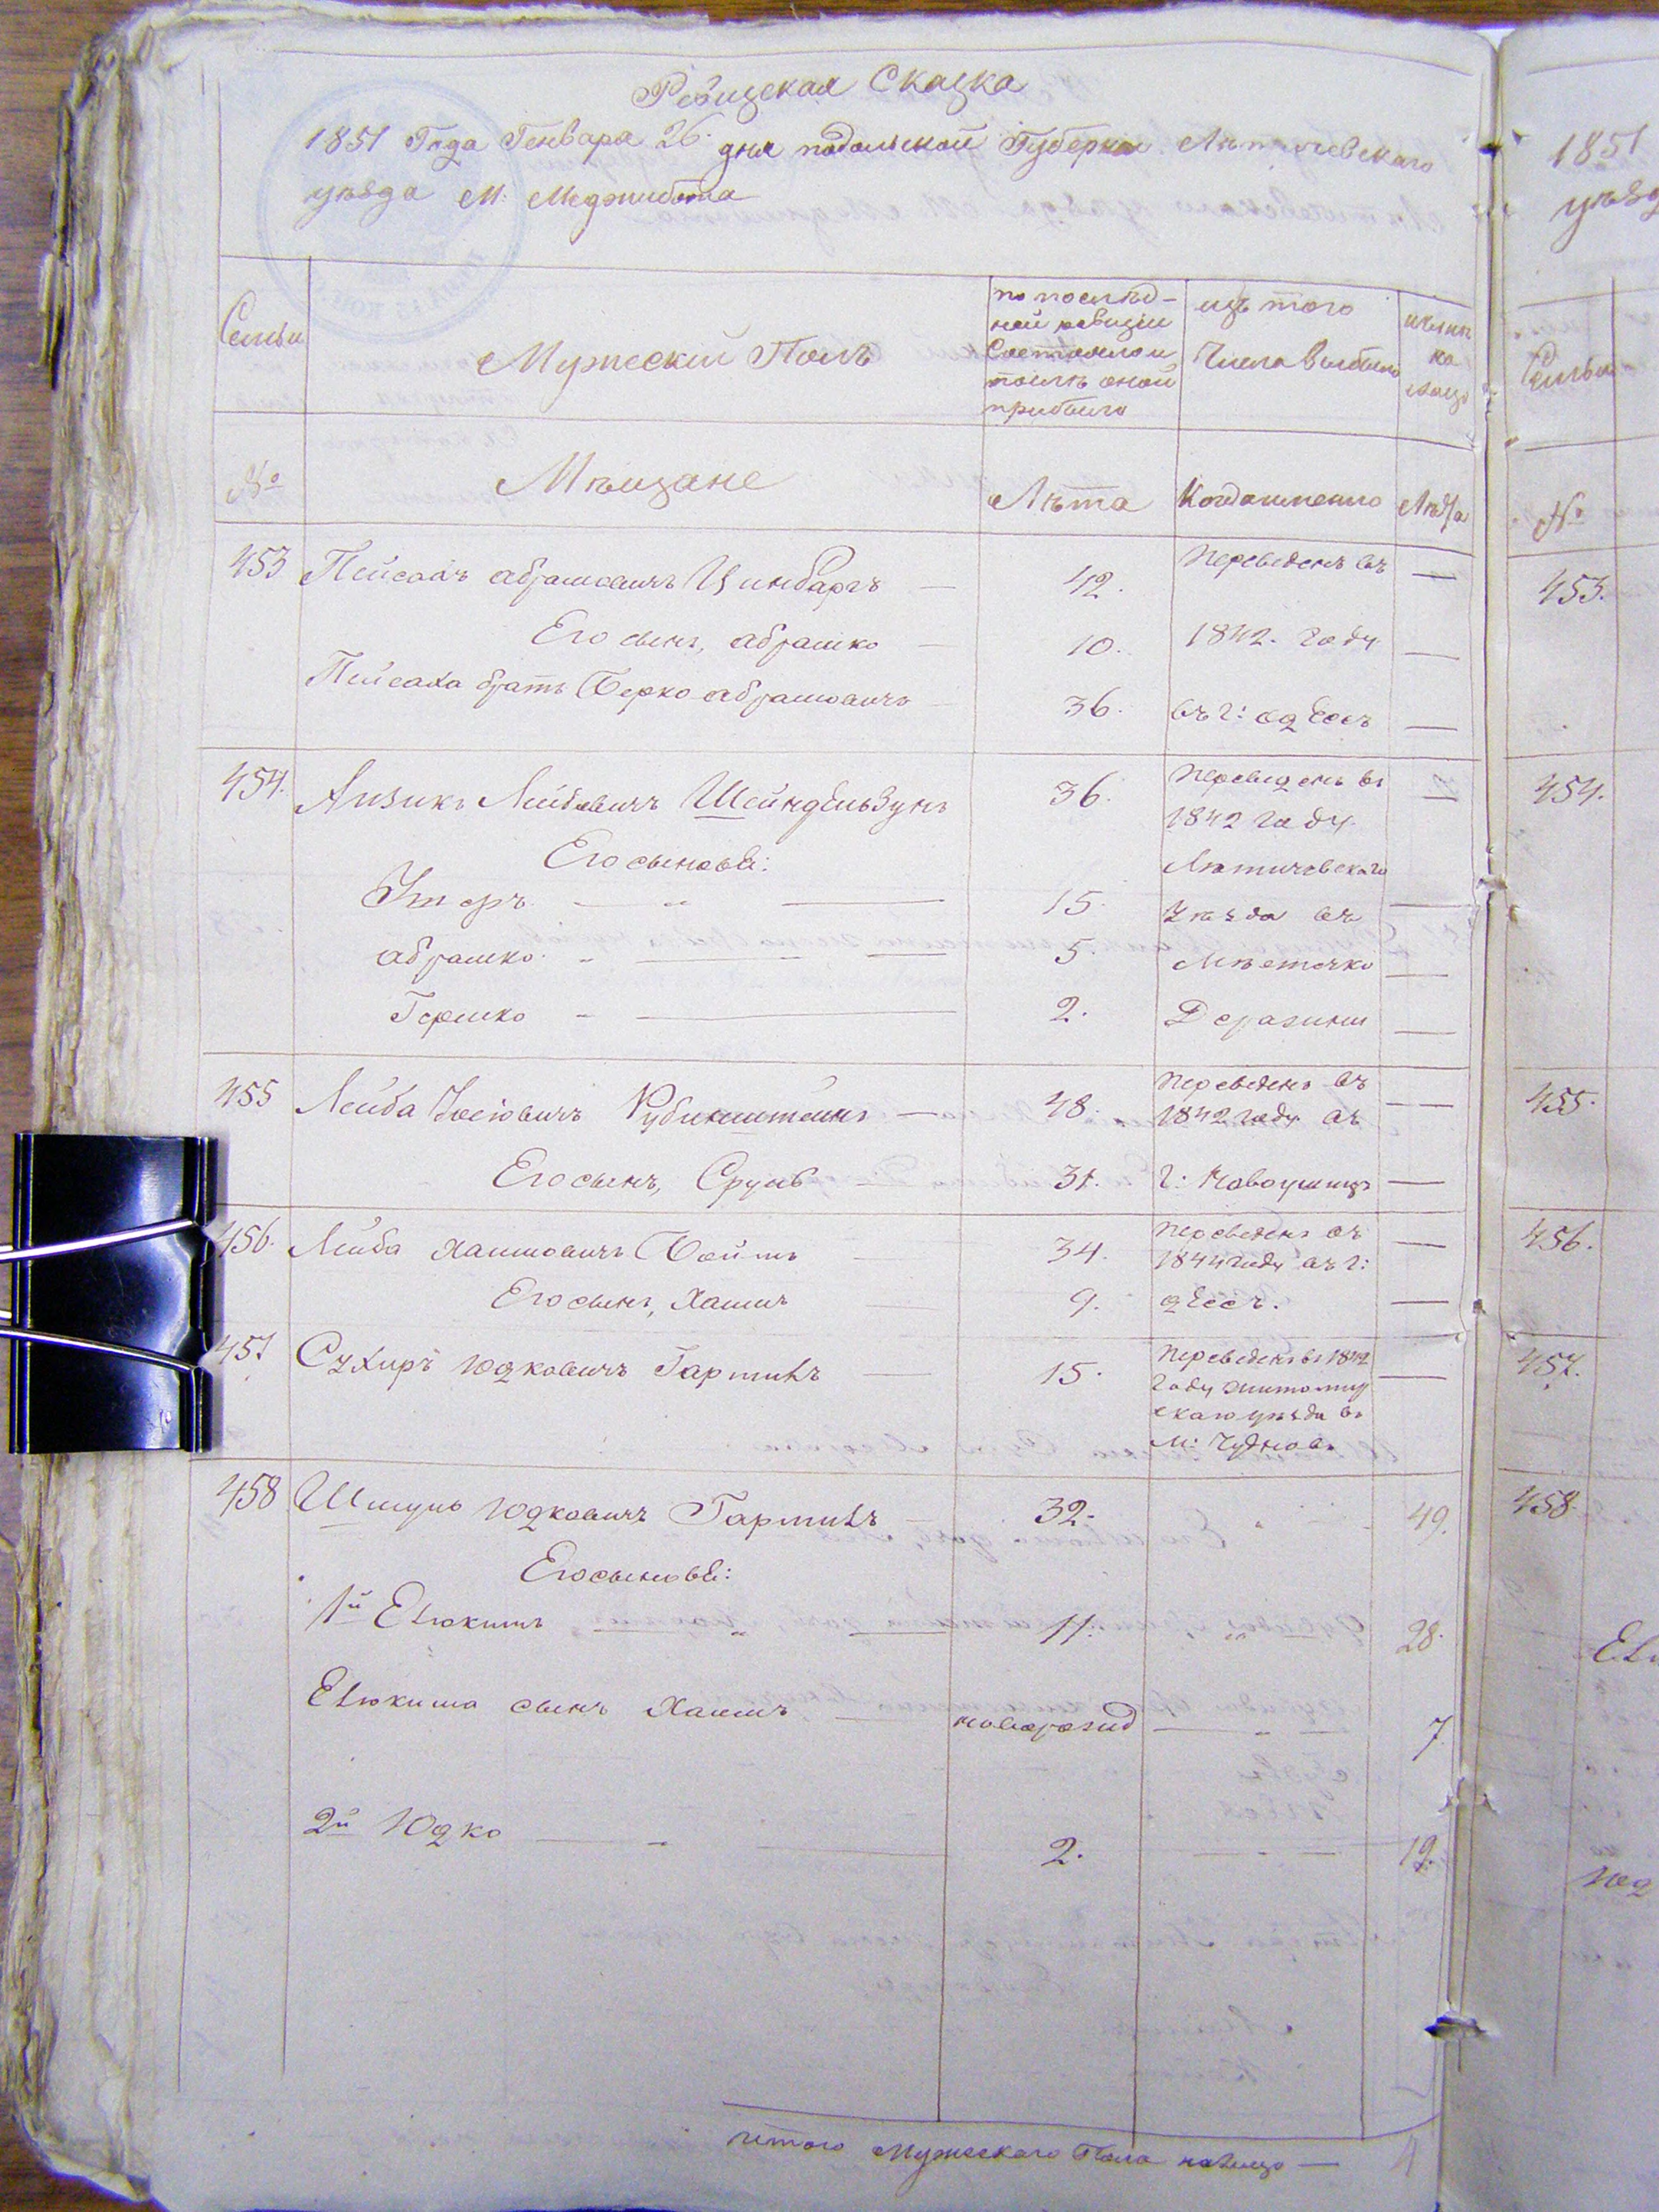 Ревизская Сказка
1851 Года Генваря 26. дня подольской Губернии Летичевскаго
уезда М: Меджибожа
Семьи
Мужеский Полъ
по послѣд-
ней ревизіи
Состояло и
послѣ оной
прибыло
изъ того
Числа выбыло
нынѣ
на
лицо
№
Мѣщане
Лѣта
Когда именно
Лѣта
453 Пейсахъ абрамовичъ Цинбаргъ — 42. Переведенъ въ —
Его сынъ, абрамко — 10. 1842. году —
Пейсаха братъ Берко абрамовичъ 36. въ г: одессъ —
454. Аизикъ Лейбовичъ Шейндельзунъ 36. Переведенъ въ —
1842 году
Его сыновья: Летичевскаго
15. уѣзда въ —
абрамко 5. Мѣстечко —
Гершко 2. Деражни —
455 Лейба Іосіовичъ Рубинштейнъ — 48. переведенъ въ —
1842 году въ
Его сынъ, Сруль 31. г: Новоушицъ —
456. Лейба Хаимовичъ 34. переведенъ въ —
1844 году въ г:
Его сынъ, Хаимъ 9. одессъ. —
457 Сухиръ Юдковичъ 15. Переведенъ въ 1842 —
году житомир
скаго уѣзда въ
М: Чудновъ
458 Шмуль Юдковичъ 32. 49.
Его сыновья:
1й Елюкимъ 11. 28.
Елюкима сынъ Хаимъ новорозид 7
2й Юдко 2. 12.
итого Мужескаго Пола налицо — 4
1851
уѣзд
Семьи
№
453.
454.
455.
456.
457.
458
Ел
Юд